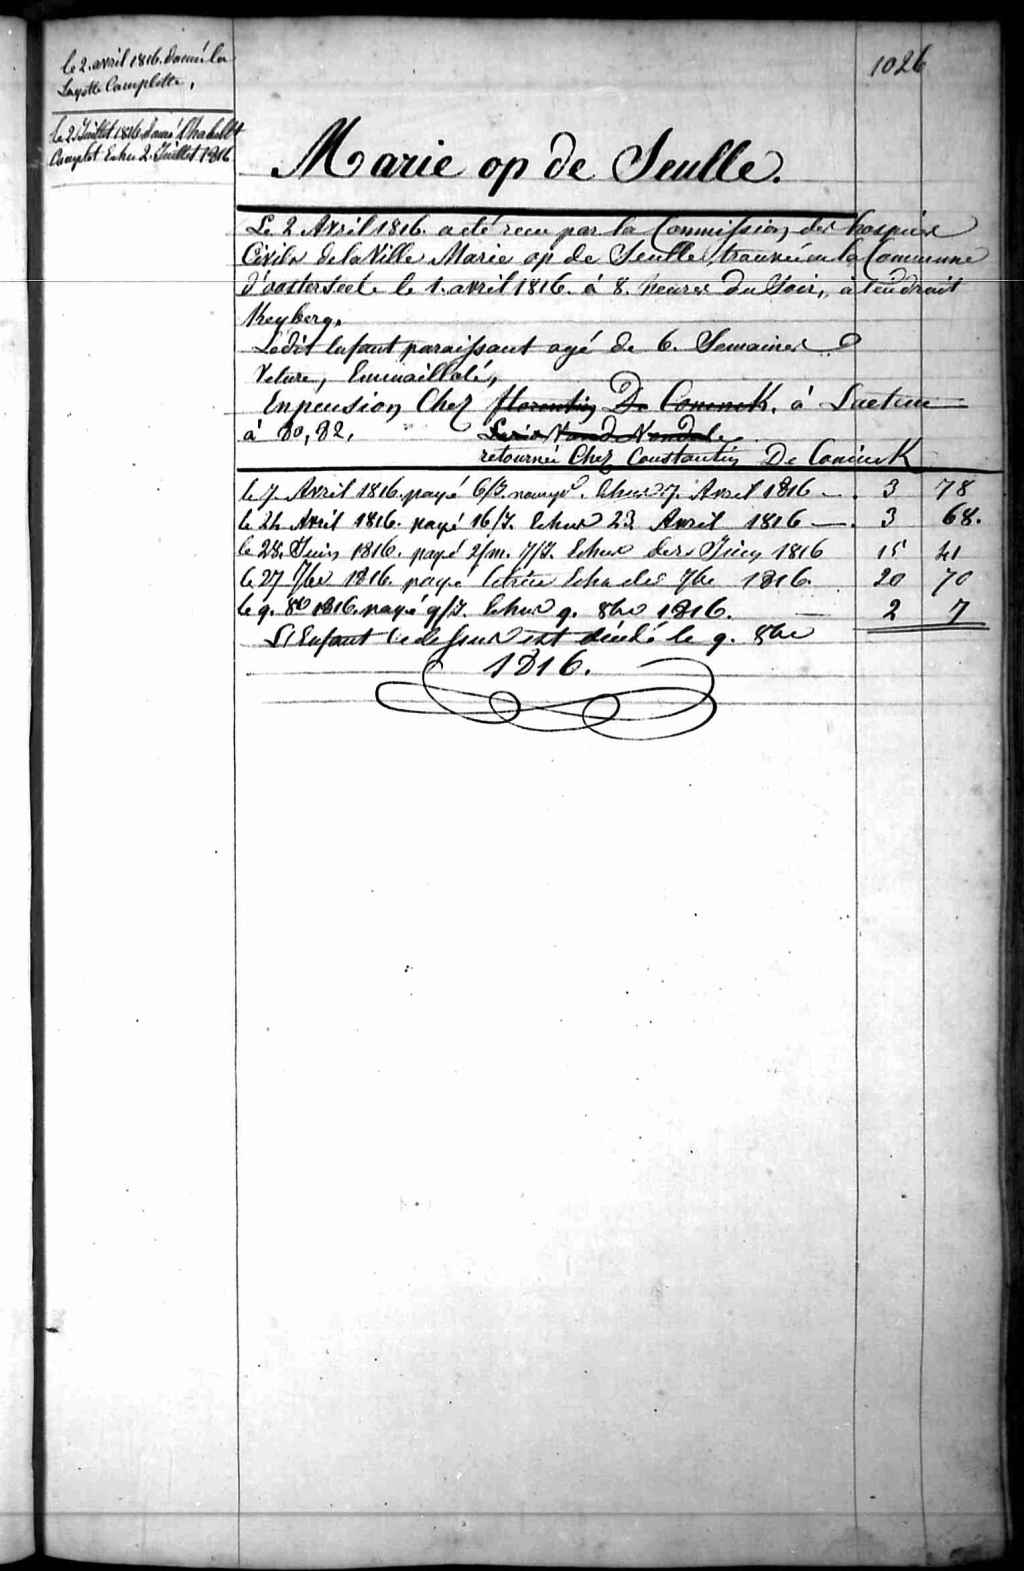 1026
le 2. avril 1816. donné la
Layette Complette,
le 2. Juillet 1816 donné l'habillt
Complet Echu 2. Juillet 1816
Marie op de Seulle.
Le 2 Avril 1816. a été recu par la Commission des hospices
Civils de la Ville Marie op de Seulle, trouvée en la Commune
d'oosterseele le 1. avril 1816. à 8. heures du Soir, à l'endroit
Keyberg.
Ledit Enfant paraissant agé de 6. Semaines
Veture, Emmaillolé,
En pension Chez florentin De Coninck. à Laetem
à 80, 82,
retournée Chez Constantin De Coninck
le 7. Avril 1816. payé 6/J. Echus 7. Avril 1816 3 78
le 24 Avril 1816. payé 16/J. Echus 23 Avril 1816 3 68.
le 28. Juin 1816. payé 2/m. 7/J. Echus der. Juin 1816 15 41
le 27 7bre 1816. payé Echu der 7bre 1816. 20 70
le 9. 8be 1816. payé 9/J. Echus 9. 8bre 1816. 2 7
L'Enfant ci dessus est décédé le 9. 8bre
1816.